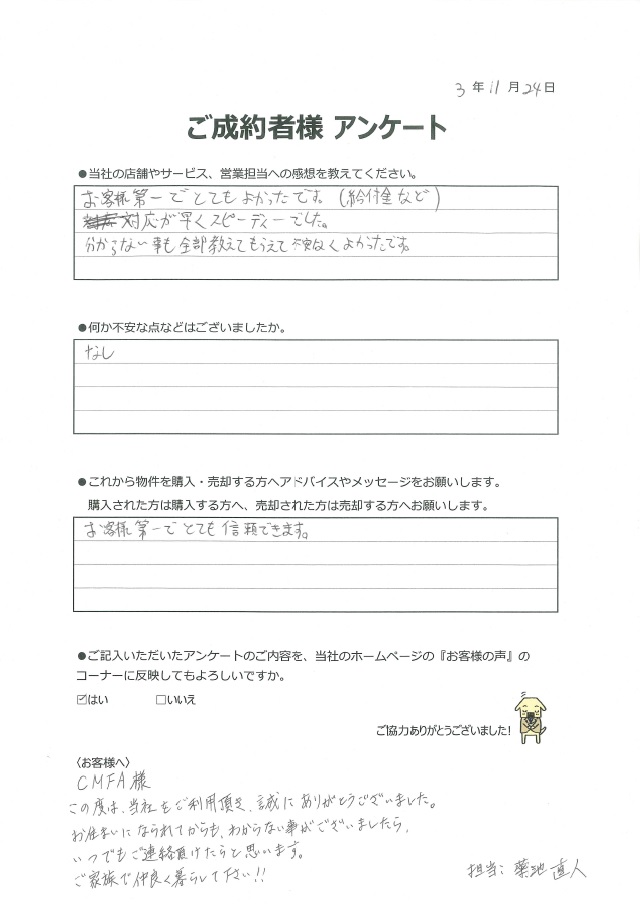 3年11月24日
ご成約者様 アンケート
●当社の店舗やサービス、営業担当への感想を教えてください。
お客様第一でとてもよかったです。(給付金など)
対応が早くスピーディーでした。
分からない事も全部教えてもらえて よかったです。
●何か不安な点などはございましたか。
なし
●これから物件を購入・売却する方へアドバイスやメッセージをお願いします。
購入された方は購入する方へ、売却された方は売却する方へお願いします。
お客様第一でとても信頼できます。
●ご記入いただいたアンケートのご内容を、当社のホームページの『お客様の声』の
コーナーに反映してもよろしいですか。
☑はい □いいえ
ご協力ありがとうございました!
〈お客様へ〉
CMFA様
この度は、当社をご利用頂き、誠にありがとうございました。
お住まいになられてからも、わからない事がございましたら、
いつでもご連絡頂けたらと思います。
ご家族で仲良く暮らして下さい!!
担当:菊池 直人